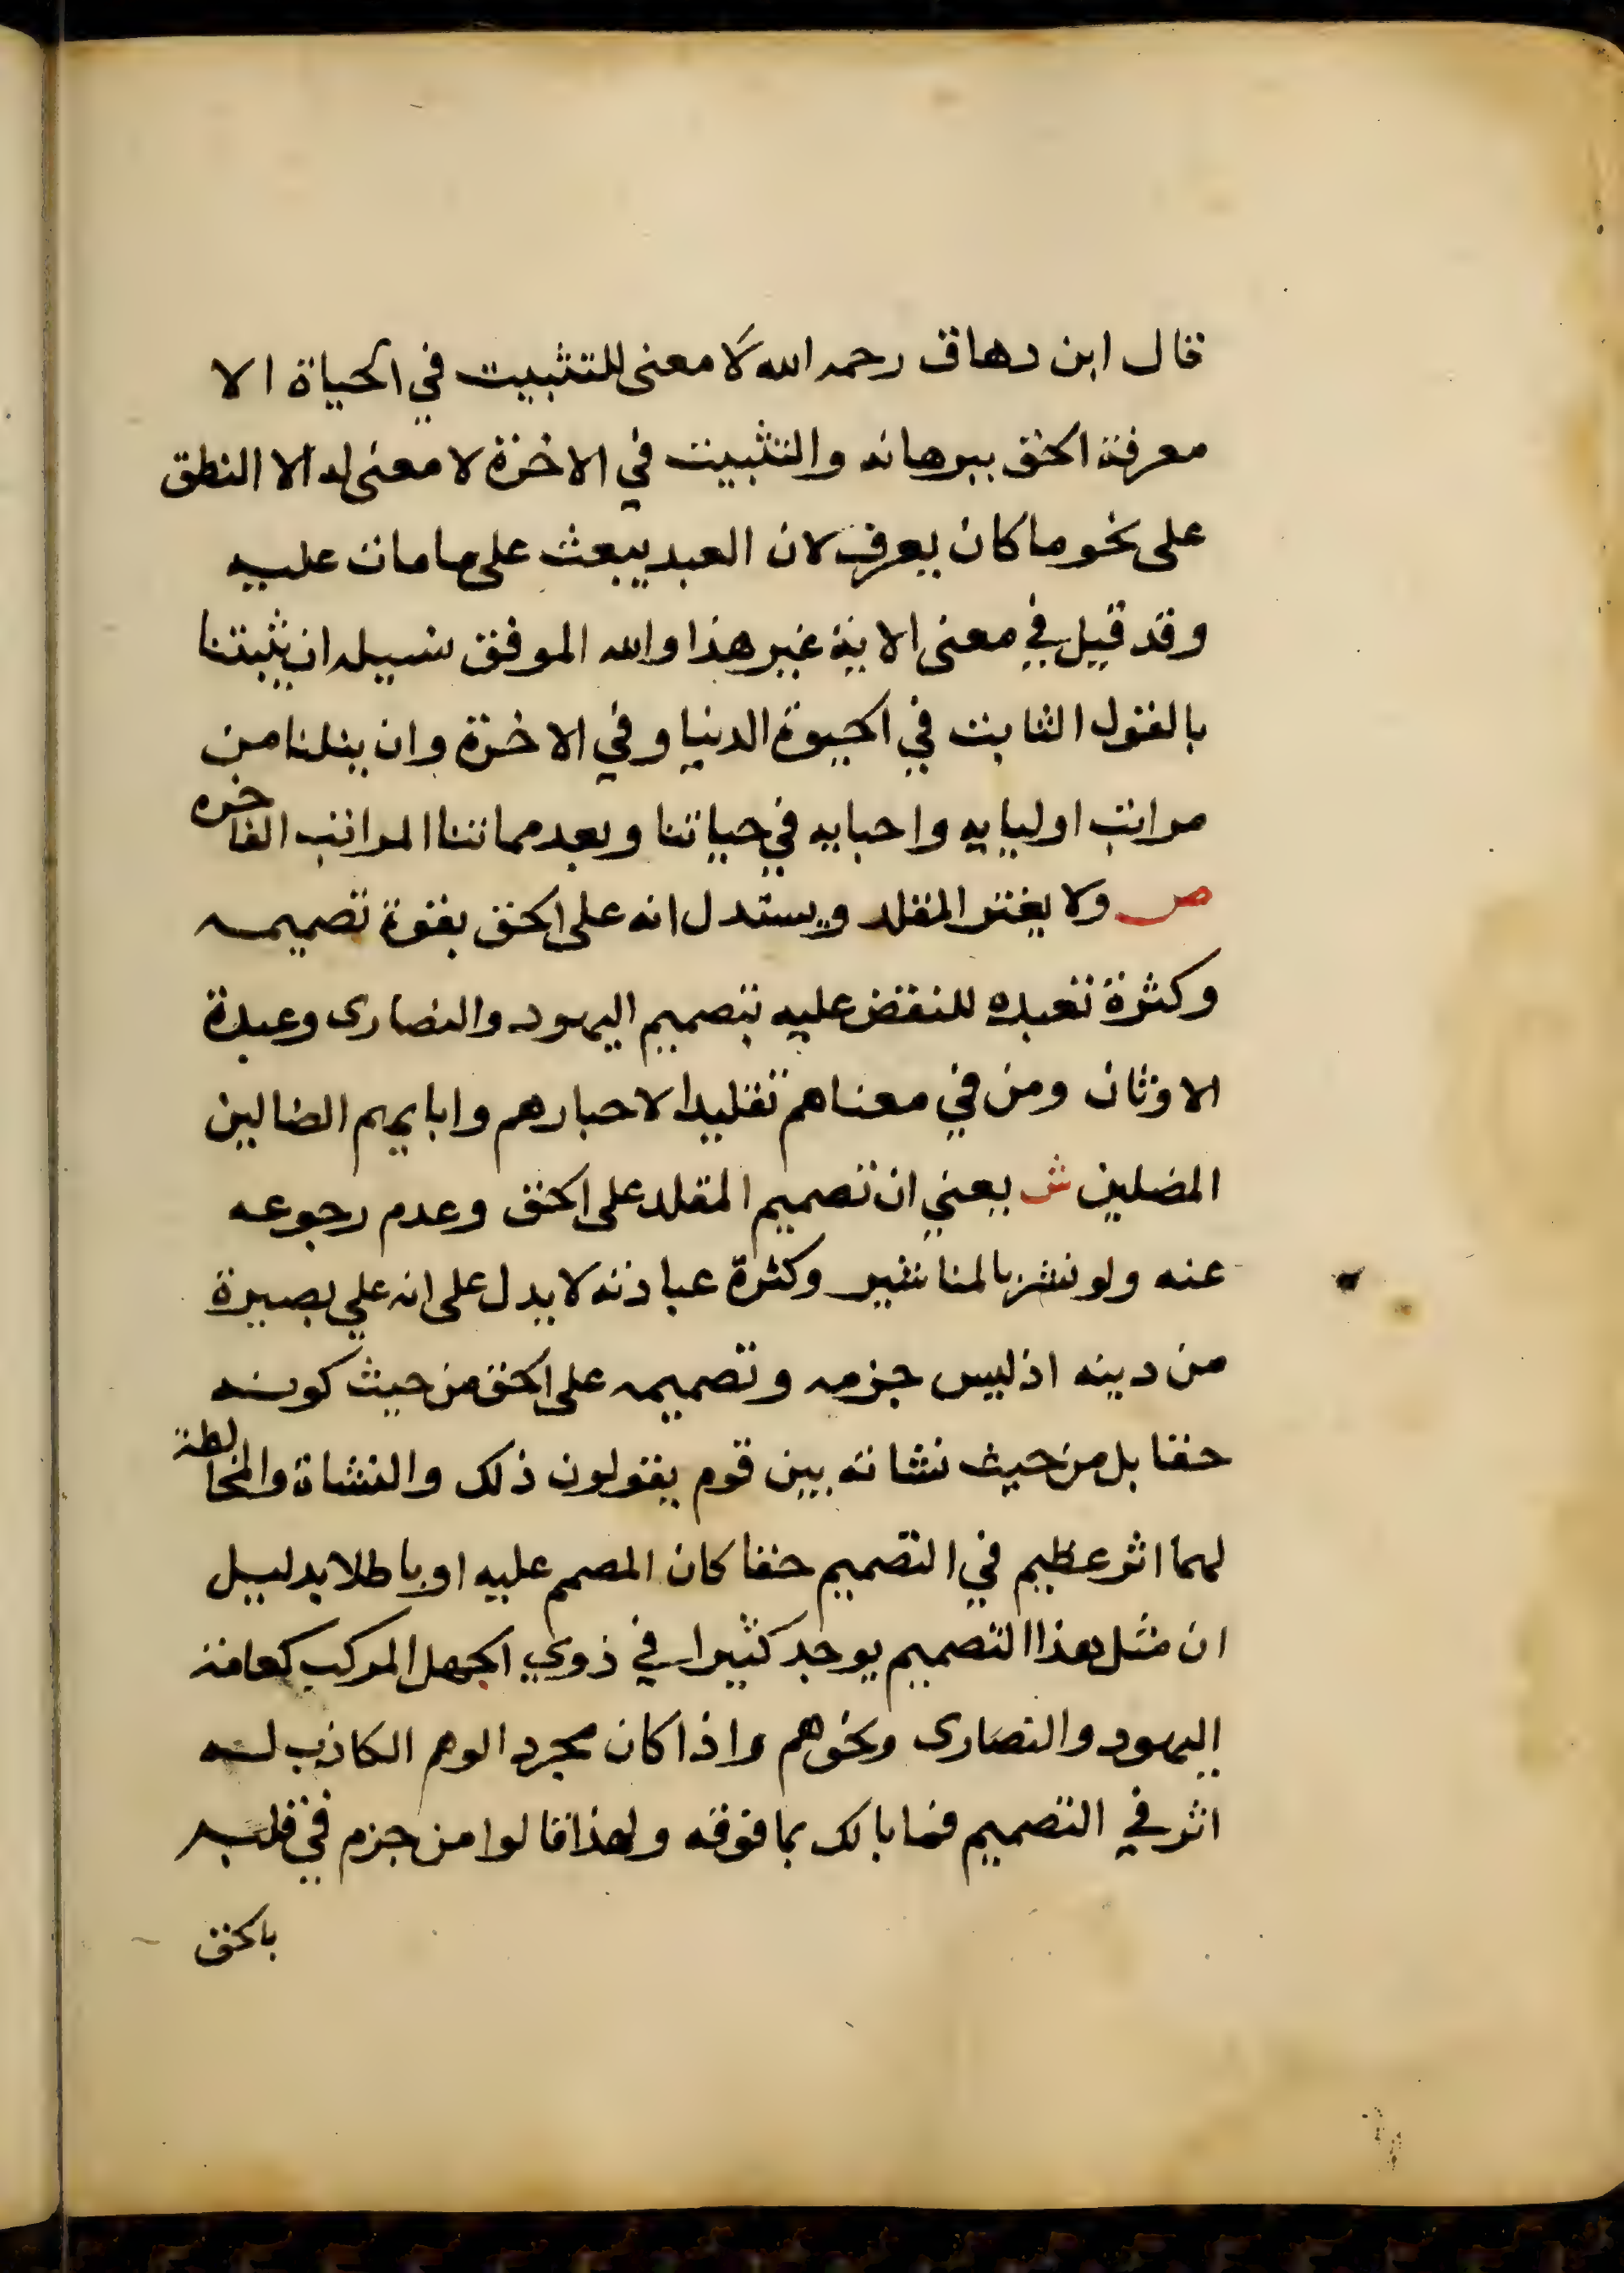 قال ابن دهاق رحمه الله لا معنى للتثبيت في الحياة الا
معرفة الحق ببرهانه والتثبيت في الاخرة لا معنى له الا النطق
على نحو ما كان يعرف لان العبد يبعث على ما مات عليه
وقد قيل في معنى الاية غير هذا والله الموفق نسيله ان يثبتنا
بالقول الثابت في الحيوة الدنيا وفي الاخرة وان ينلنا من
مراتب اوليايه واحبايه في حياتنا وبعد مماتنا المراتب الفاخره
ص ولا يغتر المقلد ويستدل انه على الحق بقوة تصميمه
وكثرة تعبده للنقض عليه بتصميم اليهود والنصارى وعبدة
الاوثان ومن في معناهم تقليدا لاحبارهم وابايهم الضالين
المضلين ش يعني ان تصميم المقلد على الحق وعدم رجوعه
عنه ولو نشر بالمناشير وكثرة عبادته لا يدل على انه علي بصيرة
من دينه اذ ليس جزمه وتصميمه على الحق من حيث كونه
حقا بل من حيث نشاته بين قوم يقولون ذلك والنشاة والمخالطة
لهما اثر عظيم في التصميم حقا كان المصمم عليه او باطلا بدليل
ان مثل هذا التصميم يوجد كثيرا في ذوي الجهل المركب كعامة
اليهود والنصارى ونحوهم واذا كان مجرد الوهم الكاذب له
اثر في التصميم فما بالك بما فوقه ولهذا قالوا من جزم في قلبه
بالحق